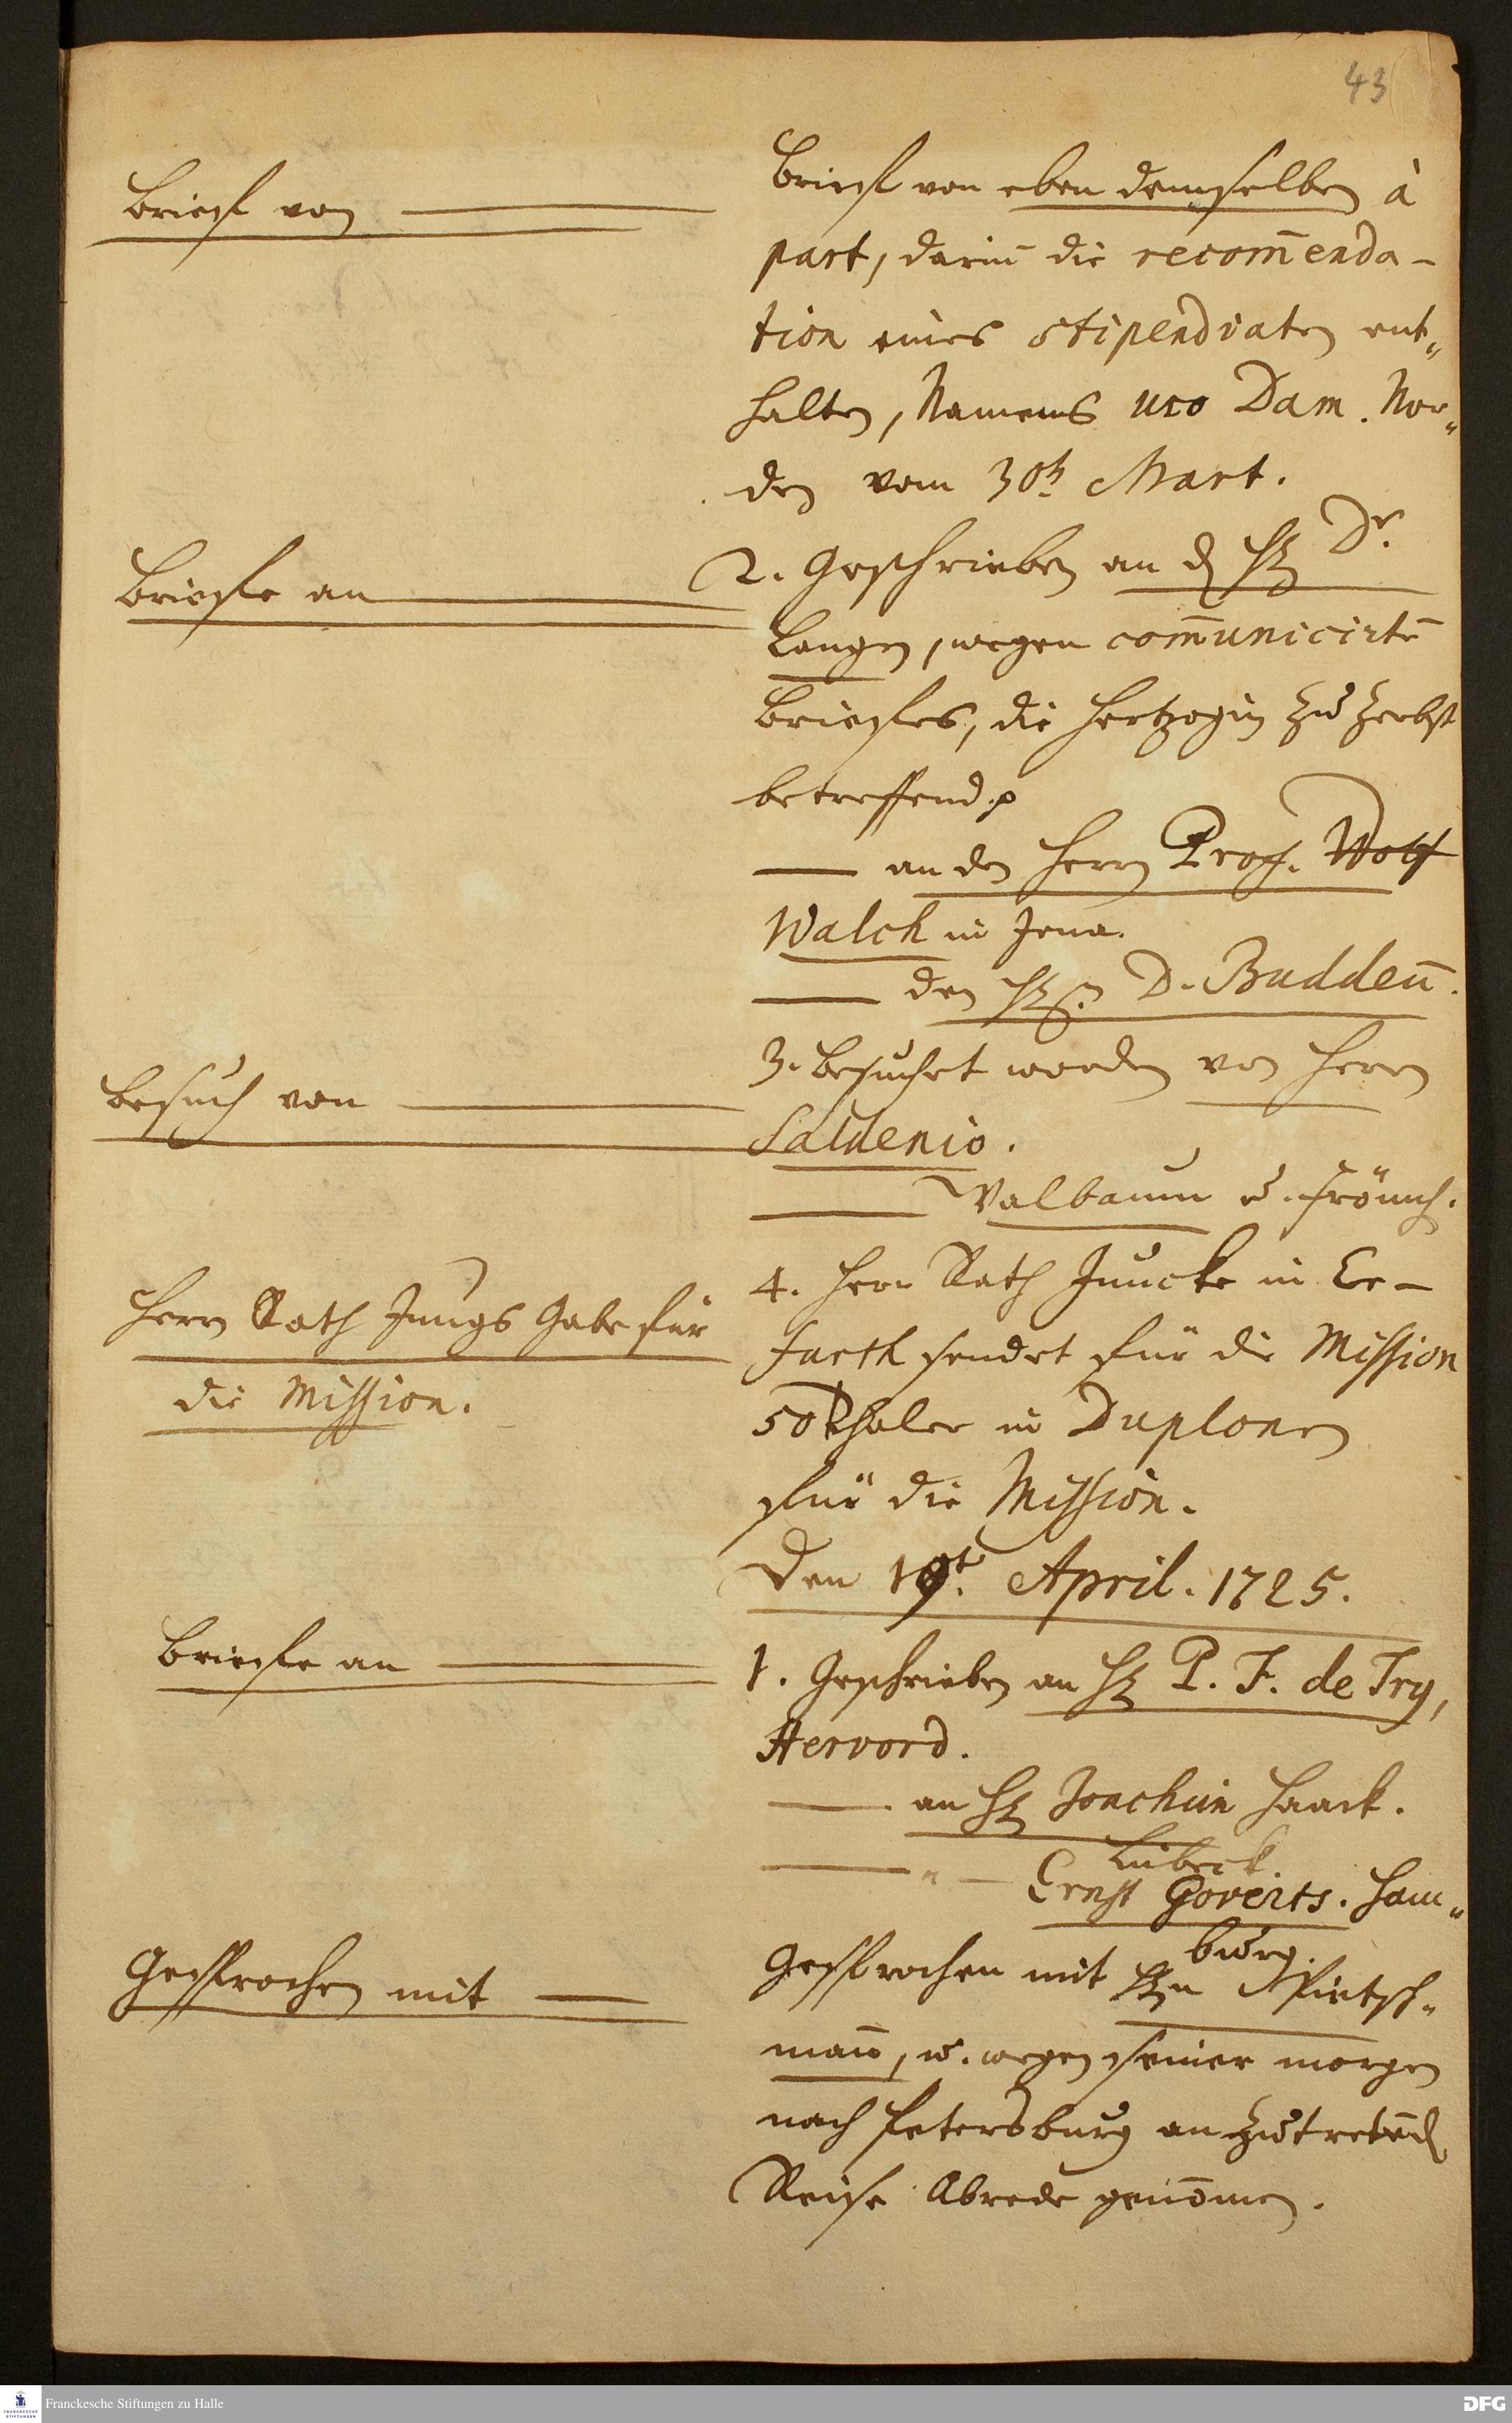 43
Brieff von
Brieff von eben demselben à
part, darin̄ die recom̄enda-
tion eines stipendiaten ent„
halten, Namens uco Dam. Nor„
den vom 30t. Mart.
Brieffe an
2. Geschrieben an d H Dr.
Langen, wegen com̄unicirtē
Brieffes, die Hertzogin zu Zerbst
betreffend.
an den Herrn Prof. Wolf
Walch in Jena.
den H. D. Buddeū.
Besuch von
3. Besuchet worden von Herrn
Saldenio.
Walbaum u. Frömch.
Herrn Rath Jungs Gabe für
die Mission.
4. Herr Rath Juncke in Er-
furth sendet für die Mission
50 Rthaler in Duplonen
für die Mission.
Den 19t. April. 1725.
Brieffe an
1. Geschrieben an H P. F. de Try,
Hervord.
an H Joachim Haack.
Lübeck.
Ernst Goverts. Ham„
burg.
Gesprochen mit
Gesprochen mit Hn Pietsch„
man̄, u. wegen seiner morgen
nach Petersburg anzutretēd
Reise Abrede genōmen.
Franckesche Stiftungen zu Halle
FRANCKESCHE STIFTUNGEN
DFG